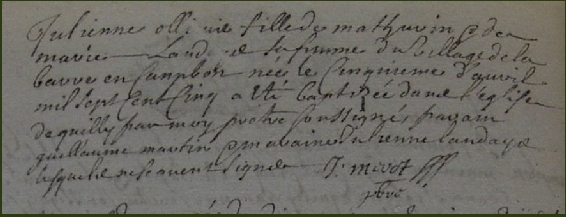 Julienne ollivie fille de mathurin & de
marie Landaye sa femme du village de la
barre en Campbon née le Cinquieme d'avril
mil sept Cent Cinq a été baptizée dans l'eglise
de quilly par moy prètre soussigné, parain
guillaume martin & maraine Julienne Landaye
lesquels ne scavent signer J. mivot
pbre